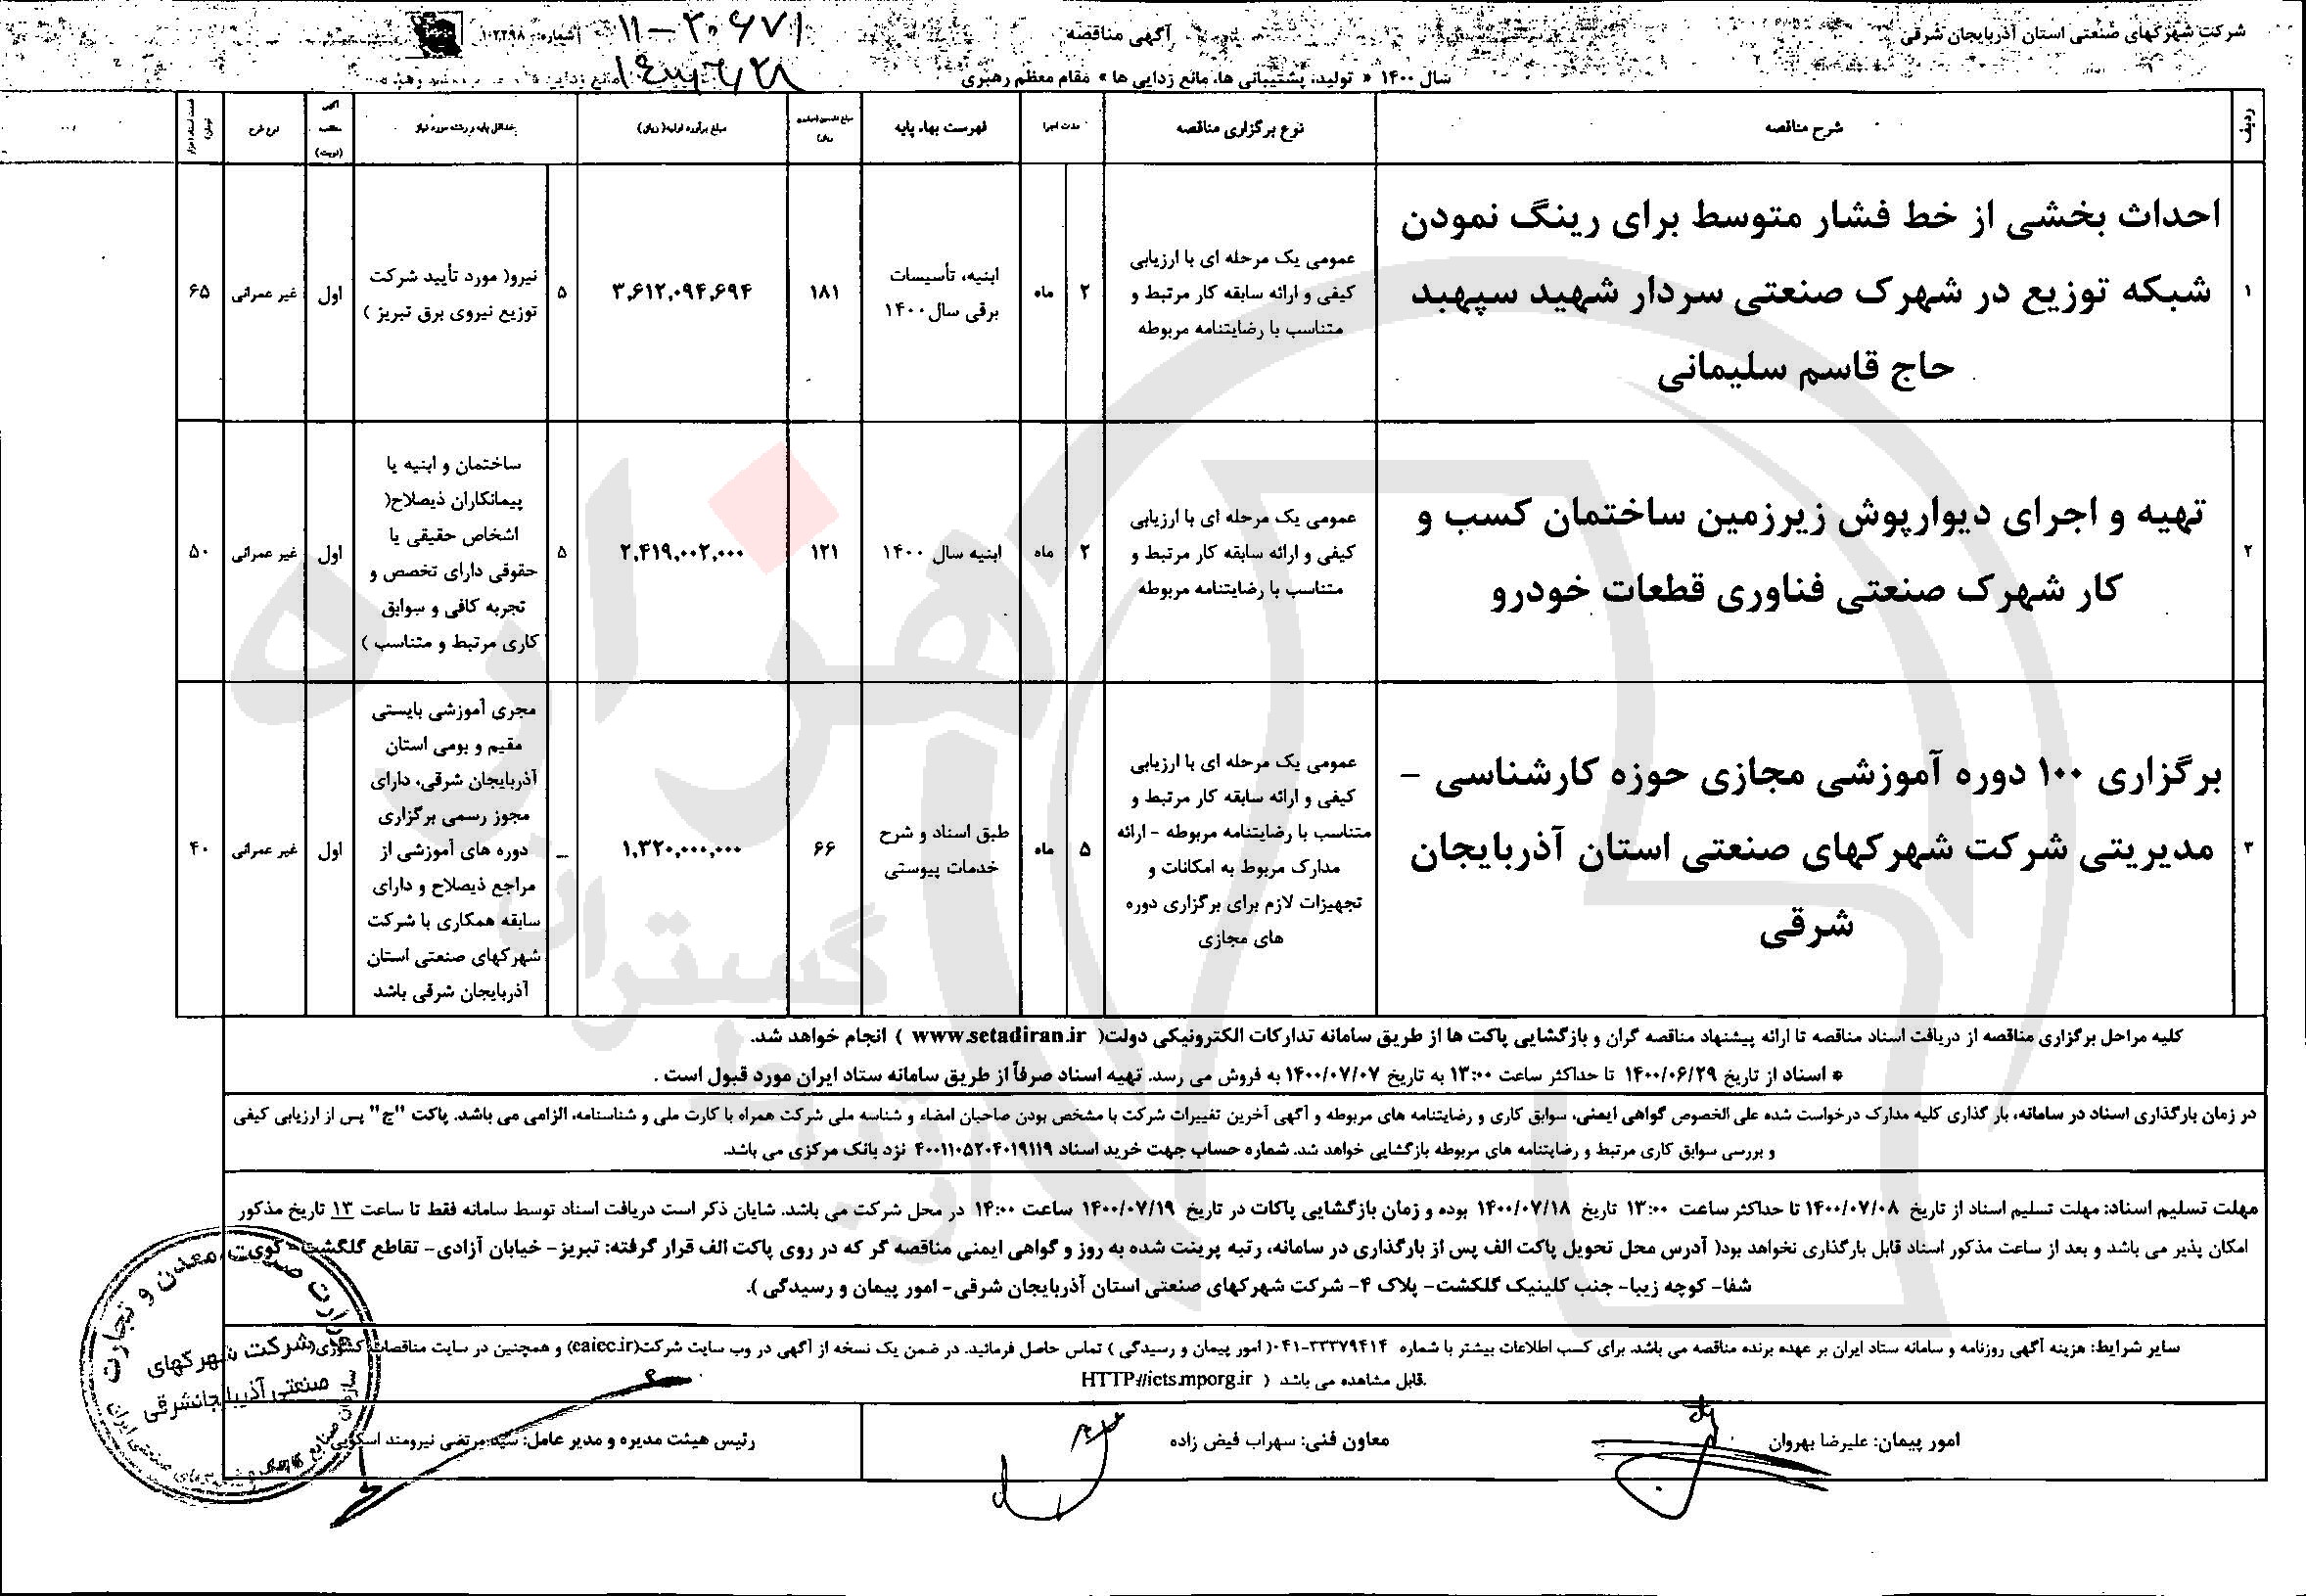 شرکت شهرکهای صنعتی استان آذربایجان شرقی
آگهی مناقصه
شماره: ۱۰۲۲۹۸
۱۱-۲۰۶۷۱
سال ۱۴۰۰ « تولید، پشتیبانی ها، مانع زدایی ها » مقام معظم رهبری
۱۴۰۰/۶/۲۸
ردیف
شرح مناقصه
نوع برگزاری مناقصه
مدت اجرا
فهرست بهاء پایه
مبلغ تضمین
مبلغ برآورد اولیه( ریال)
حداقل پایه و رشته مورد نیاز
آگهی مناقصه (نوبت)
نوع طرح
۱
احداث بخشی از خط فشار متوسط برای رینگ نمودن
شبکه توزیع در شهرک صنعتی سردار شهید سپهبد
حاج قاسم سلیمانی
عمومی یک مرحله ای با ارزیابی
کیفی و ارائه سابقه کار مرتبط و
متناسب با رضایتنامه مربوطه
۲
ماه
ابنیه، تأسیسات
برقی سال۱۴۰۰
۱۸۱
۳,۶۱۲,۰۹۴,۶۹۴
۵
نیرو( مورد تأیید شرکت
توزیع نیروی برق تبریز )
اول
غیر عمرانی
۶۵
۲
تهیه و اجرای دیوارپوش زیرزمین ساختمان کسب و
کار شهرک صنعتی فناوری قطعات خودرو
عمومی یک مرحله ای با ارزیابی
کیفی و ارائه سابقه کار مرتبط و
متناسب با رضایتنامه مربوطه
۲
ماه
ابنیه سال ۱۴۰۰
۱۲۱
۲,۴۱۹,۰۰۲,۰۰۰
۵
ساختمان و ابنیه یا
پیمانکاران ذیصلاح(
اشخاص حقیقی یا
حقوقی دارای تخصص و
تجربه کافی و سوابق
کاری مرتبط و متناسب )
اول
غیر عمرانی
۵۰
۳
برگزاری ۱۰۰ دوره آموزشی مجازی حوزه کارشناسی -
مدیریتی شرکت شهرکهای صنعتی استان آذربایجان
شرقی
عمومی یک مرحله ای با ارزیابی
کیفی و ارائه سابقه کار مرتبط و
متناسب با رضایتنامه مربوطه - ارائه
مدارک مربوط به امکانات و
تجهیزات لازم برای برگزاری دوره
های مجازی
۵
ماه
طبق اسناد و شرح
خدمات پیوستی
۶۶
۱,۳۲۰,۰۰۰,۰۰۰
_
مجری آموزشی بایستی
مقیم و بومی استان
آذربایجان شرقی، دارای
مجوز رسمی برگزاری
دوره های آموزشی از
مراجع ذیصلاح و دارای
سابقه همکاری با شرکت
شهرکهای صنعتی استان
آذربایجان شرقی باشد
اول
غیر عمرانی
۴۰
کلیه مراحل برگزاری مناقصه از دریافت اسناد مناقصه تا ارائه پیشنهاد مناقصه گران و بازگشایی پاکت ها از طریق سامانه تدارکات الکترونیکی دولت( www.setadiran.ir ) انجام خواهد شد.
* اسناد از تاریخ ۱۴۰۰/۰۶/۲۹ تا حداکثر ساعت ۱۳:۰۰ به تاریخ ۱۴۰۰/۰۷/۰۷ به فروش می رسد. تهیه اسناد صرفاً از طریق سامانه ستاد ایران مورد قبول است .
در زمان بارگذاری اسناد در سامانه، بار گذاری کلیه مدارک درخواست شده علی الخصوص گواهی ایمنی، سوابق کاری و رضایتنامه های مربوطه و آگهی آخرین تغییرات شرکت با مشخص بودن صاحبان امضاء و شناسه ملی شرکت همراه با کارت ملی و شناسنامه، الزامی می باشد. پاکت "ج" پس از ارزیابی کیفی
و بررسی سوابق کاری مرتبط و رضایتنامه های مربوطه بازگشایی خواهد شد. شماره حساب جهت خرید اسناد ۴۰۰۱۱۰۵۲۰۴۰۱۹۱۱۹ نزد بانک مرکزی می باشد.
مهلت تسلیم اسناد: مهلت تسلیم اسناد از تاریخ ۱۴۰۰/۰۷/۰۸ تا حداکثر ساعت ۱۳:۰۰ تاریخ ۱۴۰۰/۰۷/۱۸ بوده و زمان بازگشایی پاکات در تاریخ ۱۴۰۰/۰۷/۱۹ ساعت ۱۴:۰۰ در محل شرکت می باشد. شایان ذکر است دریافت اسناد توسط سامانه فقط تا ساعت ۱۳ تاریخ مذکور
امکان پذیر می باشد و بعد از ساعت مذکور اسناد قابل بارگذاری نخواهد بود( آدرس محل تحویل پاکت الف پس از بارگذاری در سامانه، رتبه پرینت شده به روز و گواهی ایمنی مناقصه گر که در روی پاکت الف قرار گرفته: تبریز- خیابان آزادی- تقاطع گلگشت- کوی
شفا- کوچه زیبا- جنب کلینیک گلگشت- پلاک ۴- شرکت شهرکهای صنعتی استان آذربایجان شرقی- امور پیمان و رسیدگی ).
سایر شرایط: هزینه آگهی روزنامه و سامانه ستاد ایران بر عهده برنده مناقصه می باشد. برای کسب اطلاعات بیشتر با شماره ۰۴۱-۳۳۳۷۹۴۱۴( امور پیمان و رسیدگی ) تماس حاصل فرمائید. در ضمن یک نسخه از آگهی در وب سایت شرکت(eaiec.ir) و همچنین در سایت مناقصات کشوری(
HTTP://iets.mporg.ir ) قابل مشاهده می باشد.
امور پیمان: علیرضا بهروان
معاون فنی: سهراب فیض زاده
رئیس هیئت مدیره و مدیر عامل: سید مرتضی نیرومند اسکویی
وزارت صنعت معدن و تجارت
شرکت شهرکهای
صنعتی آذربایجانشرقی
هزاره
گستران